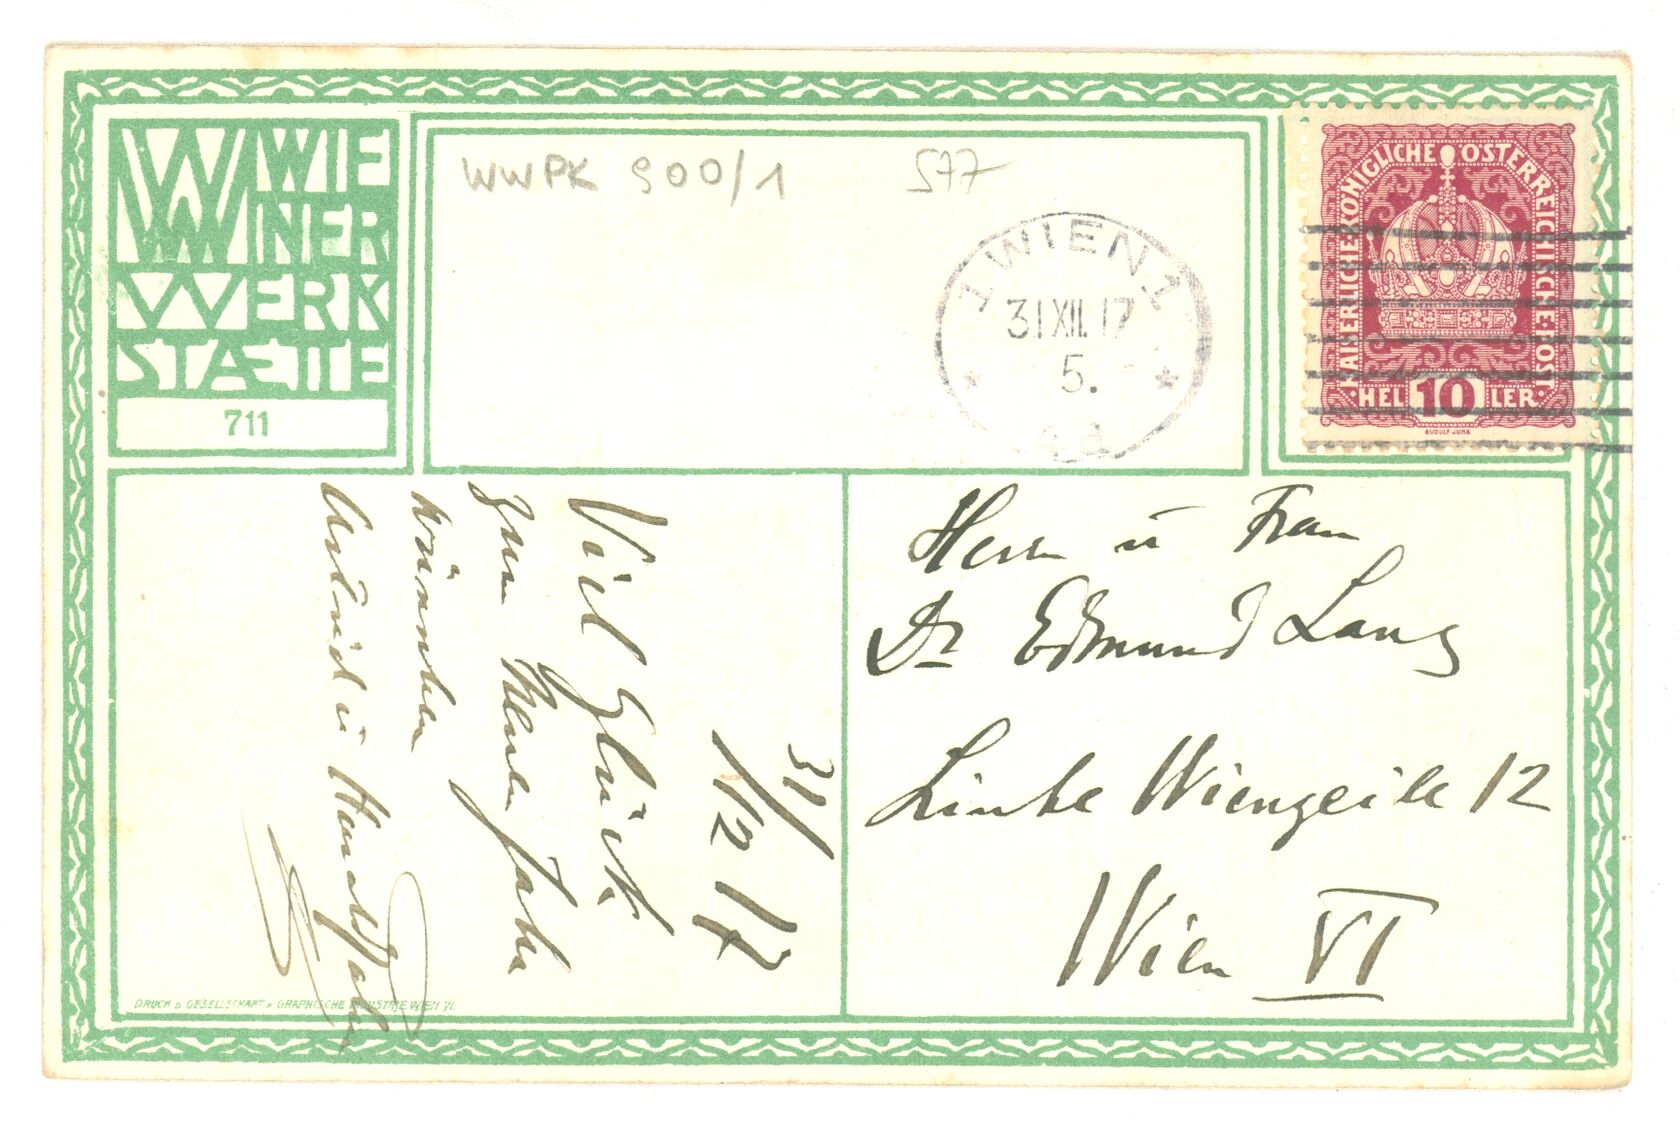 WIE
NER
WERK
STÆTTE
711
WWPK 900/1 577
1 WIEN 1
31 XII. 17
5.
KAISERLICHE KÖNIGLICHE ÖSTERREICHISCHE POST
HELLER
10
RUDOLF JUNK
31/
/12 17
Viel Glück
zum Neuen Jahr
wünschen
Herrn u Frau
Dr Edmund Lang
Linke Wienzeile 12
Wien VI
DRUCK D. GESELLSCHAFT F. GRAPHISCHE INDUSTRIE WIEN VI.